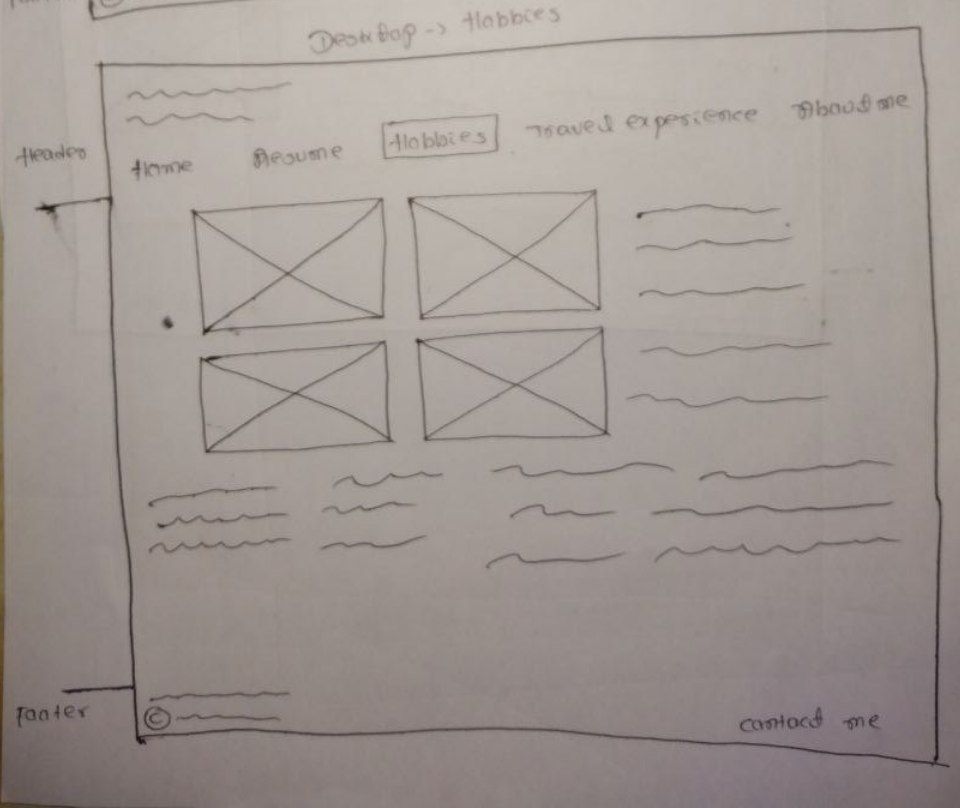 Desktop -> Hobbies
Header
Home Resume Hobbies Travel experience About me
Footer
©
contact me